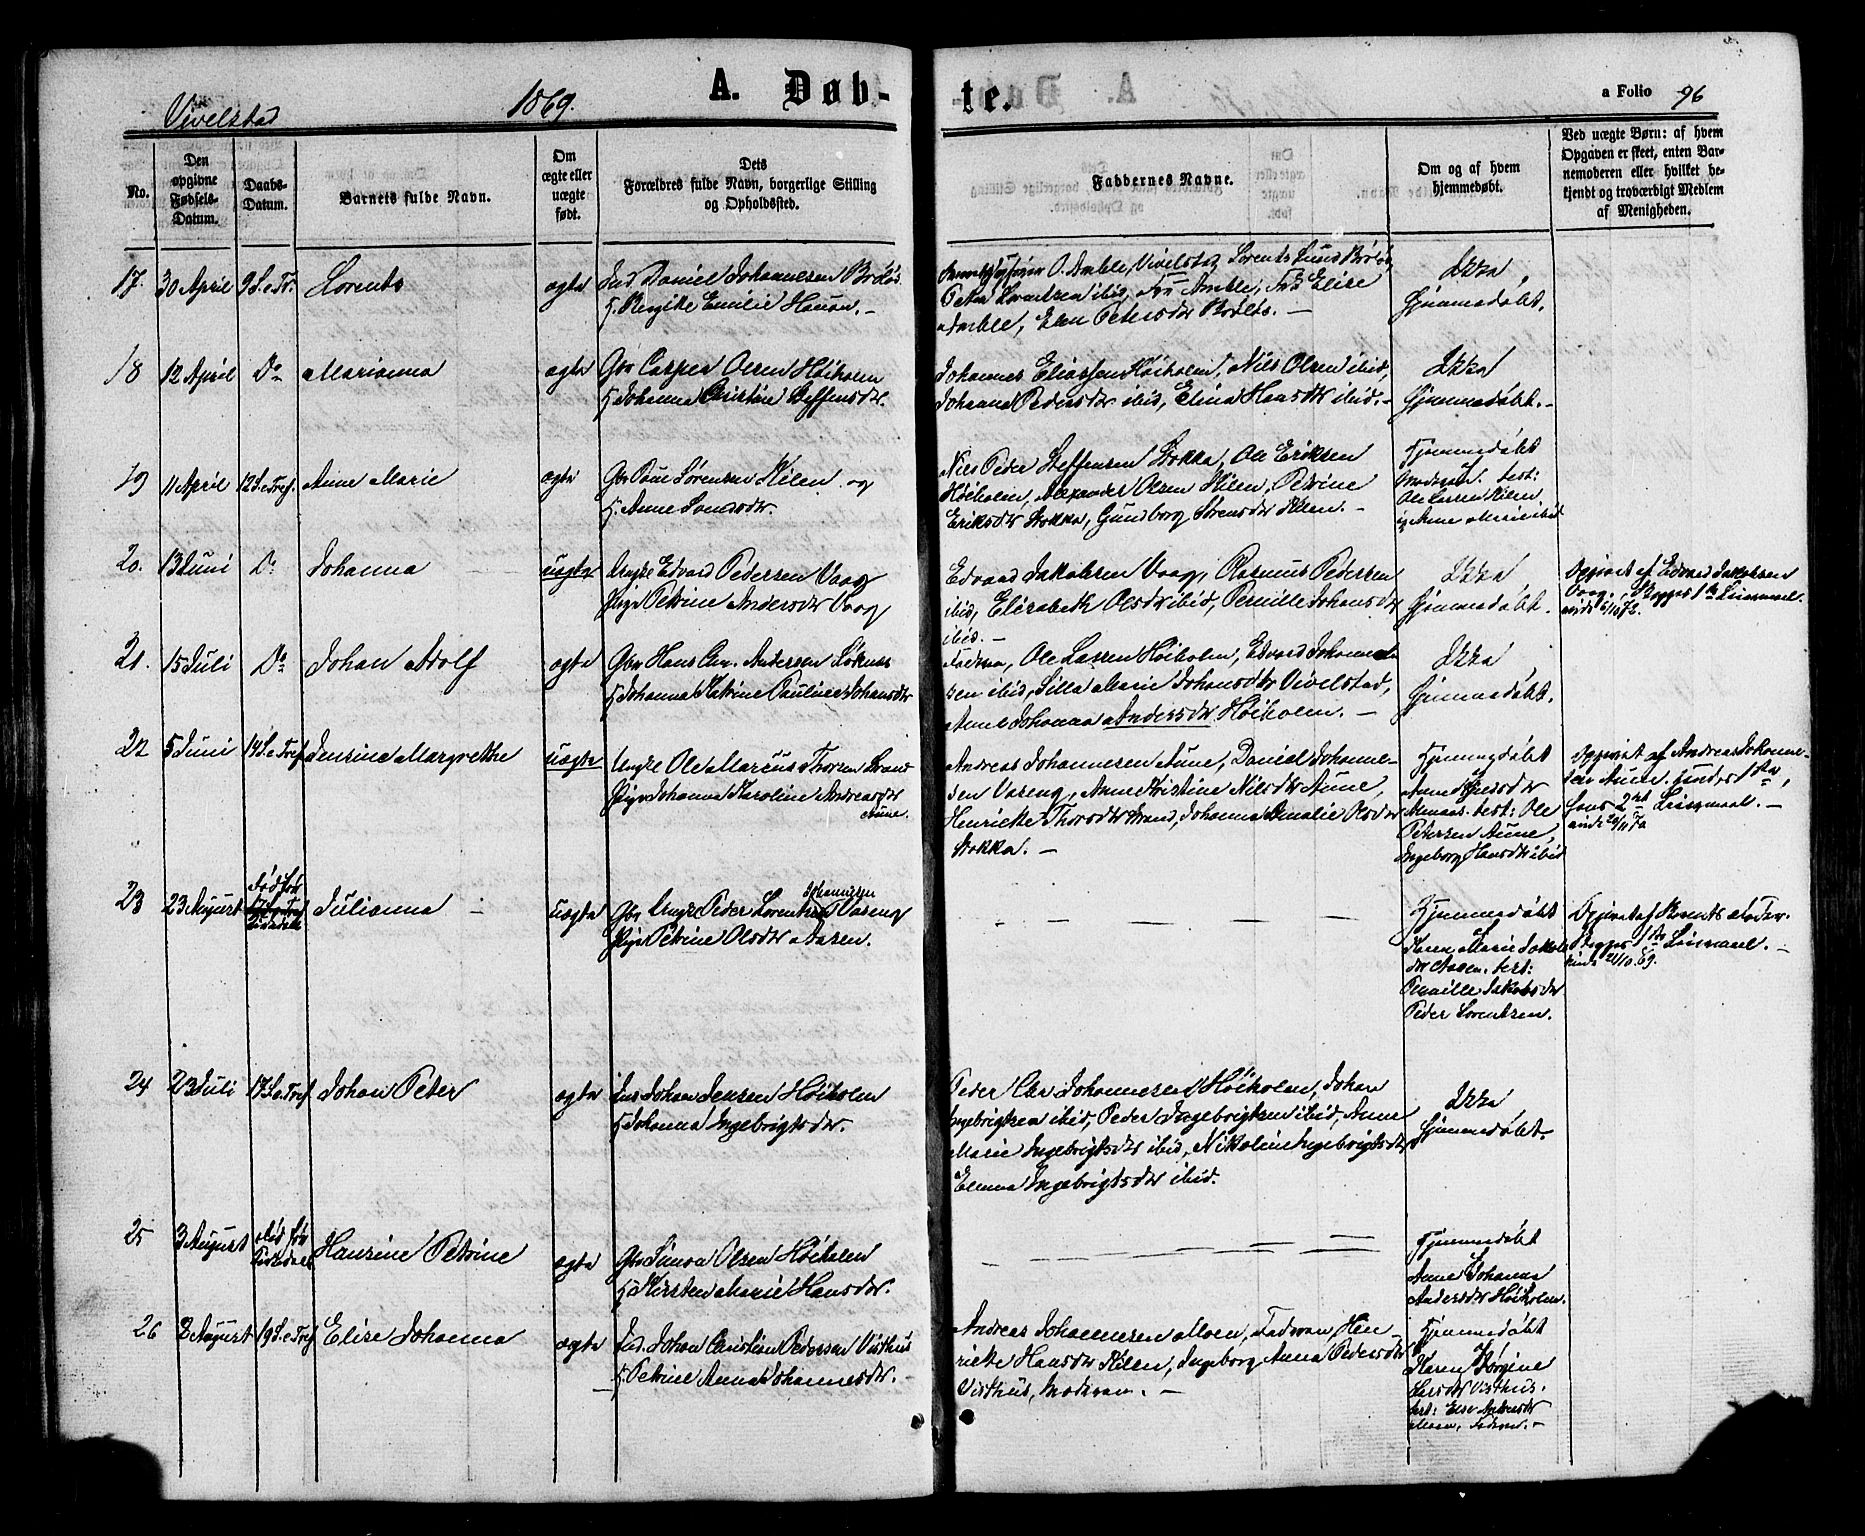 Vivelstad
1869.
A. Døb-
te.
a Folio 96
No.
Den
opgivne
Fødsels-
Datum.
Daabs-
Datum.
Barnets fulde Navn.
Om
ægte eller
uægte
født.
Dets
Forældres fulde Navn, borgerlige Stilling
og Opholdssted.
Faddernes Navne.
Om og af hvem
hjemmedøbt.
Ved uægte Børn: af hvem
Opgaven er skeet, enten Bar-
nemoderen eller hvilket be-
kjendt og troværdigt Medlem
af Menigheden.
17. 30 April 9 S. e. Tr. Lorents ægte Ind. Daniel Johannesen
H. Emilie
O. Amble, Vivelstad, Lorents
Peter Lorentzen ibid, Fru Amble, Frk Elise
Amble, Elen Petersdr
Ikke
hjemmedøbt.
18 12 April Do Marianna ægte Gbr Casper Olsen Høiholm
H Johanna Christine Steffensdr.
Johannes Eliassen Høiholm, Nils Olsen ibid,
Johanna Pedersdr ibid, Elina Hansdr ibid.-
Ikke
hjemmedøbt.-
19 11 April 12 S. e. Tref. Anne Marie ægte Gbr Paul Sørensen Kilen og
H. Anne Jonasdr.
Nils Peder Steffensen Stokka, Ole Eriksen
Høiholm, Alexander Olsen Kilen, Petrine
Eriksdr Stokka, Gundborg Sørensdr Kilen. -
Hjemmedøbt
test:
Ole Larsen Kilen
og Anne Marie ibid
20. 13 Juni Do Johanna uægte Ungk Edvard Pedersen Vaag
Pige Petrine Andersdr Vaag
Edvard Jakobsen Vaag, Rasmus Pedersen
ibid, Elisabeth Olsdr ibid, Pernille Johansdr
ibid. -
Ikke
hjemmedøbt.
Opgivet af Edvard Jakobsen
Vaag, Begges 1ste Leiermaal.
21. 15 Juli Do Johan Adolf ægte Gbr Hans Chr. Andersen
H Johanna Katrine Pauline Johansdr
Faderen, Ole Larsen Høiholm, Edvard Johanne-
sen ibid, Silla Marie Johansdr Vivelstad,
Anne Johanna Andersdr Høiholm. -
Ikke
hjemmedøbt.
22 5 Juni 14 S. e. Tref Jensine Margrethe uægte Ungk Ole Marcus Thorsen Strand
Pige Johanna Karoline Andreasdr
Aune.
Andreas Johannesen Aune, Daniel Johanne-
sen Vareng, Anne Kristine Nilsdr Aune,
Henrikke Thorsdr Strand, Johanna Amalie Olsdr
Stokka. -
Hjemmedøbt
test: Ole
Petersen Aune,
Ingeborg Hansdr ibid
Opgivet af Andreas Johanne-
sen Aune. Hendes 1ste,
Hans 2det Leiermaal. -
23 23 August Død før Juliana uægte Ungk Peder Lorents Johannesen Vareng
Pige Petrine Olsdr Aasen.
Hjemmedøbt
Karen Marie Jakobs
dr Aasen. test:
Pernille Jakobsdr
Peder Lorentzen.
Opgivet af Barnets Fader.
Begges 1ste Leiermaal. -
24 23 Juli 17 S. e. Tref Johan Peter ægte Ind Johan Jensen Høiholm
H Johanna Ingebrigtsdr.
Peder Chr Johannesen Høiholm, Johan
Ingebrigtsen ibid, Peder Ingebrigtsen ibid, Anne
Marie Ingebrigtsdr ibid, Nikoline Ingebrigtsdr
Elenna Ingebrigtsdr ibid.
Ikke
hjemmedøbt.
25 3 August Død før Hansine Petrine ægte Gbr Simon Olsen Høiholm
H Kirsten Marie Hansdr.
Hjemmedøbt
Anne Johanna
Andersdr Høiholm.
26 8 August 19 S. e. Tref Elise Johanna ægte Ind. Johan Christian Pedersen Visthus
H. Petrine Anna Johannesdr.
Andreas Johannesen Moen, Faderen, Hen-
rikke Hansdr Kilen, Ingeborg Anna Pedersdr
Visthus, Moderen. -
Hjemmedøbt
Karen Jørgine
Larsdr Visthus.
Moen, Faderen. -